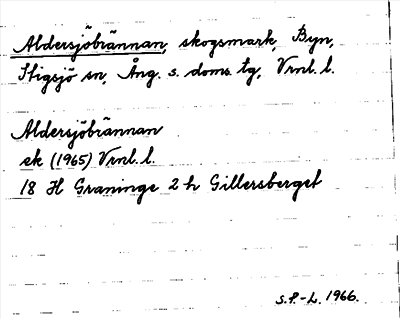 Aldersjöbrännan, skogsmark, Byn,
Stigsjö sn, Ång. s. doms. tg, Vrnl. l.
Aldersjöbrännan
ek (1965) Vrnl. l.
18 H Graninge 2 h Gillersberget
S.P.-L. 1966.